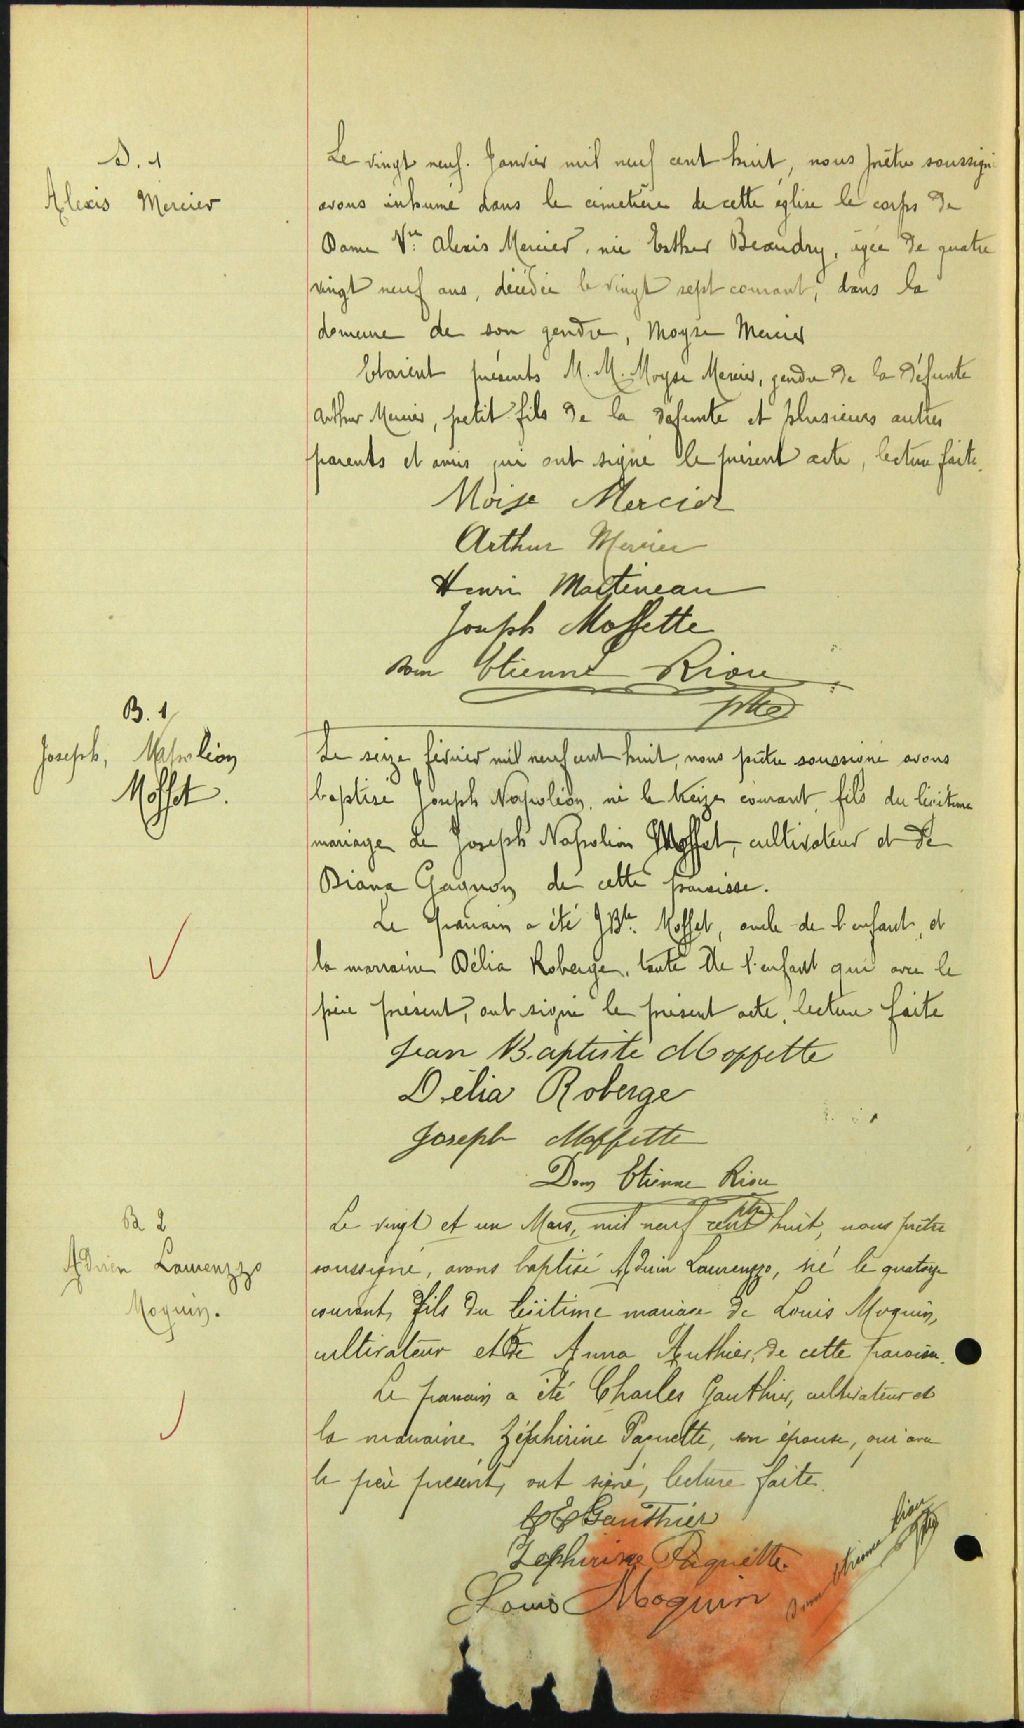 S. 1
Alexis Mercier
Le vingt neuf. Janvier mil neuf cent huit, nous prêtre soussigné
avons inhumé dans le cimetière de cette église le corps de
Dame Vve Alexis Mercier, née Esther Beaudry, agée de quatre
vingt neuf ans, décédée le vingt sept courant, dans la
demeure de son gendre, Moyse Mercier
Etaient présents M. M. Moyse Mercier, gendre de la défunte
Arthur Mercier, petit fils de la défunte et plusieurs autres
parents et amis qui ont signé le présent acte, lecture faite.
Moise Mercier
Arthur Mercier
Henri Martineau
Joseph Moffette
Dom Etienne Riou
ptre
B. 1
Joseph, Napoléon
Moffet.
Le seize février mil neuf cent huit, nous prêtre soussigné avons
baptisé Joseph Napoléon, né le treize courant, fils du légitime
mariage de Joseph Napoléon Moffet, cultivateur et de
Diana Gagnon de cette paroisse.
Le parrain a été J Bte. Moffet, oncle de l'enfant, et
la marraine Délia Roberge, tante de l'enfant qui avec le
père présent, ont signé le présent acte, lecture faite
Jean Baptiste Moffette
Délia Roberge
Joseph Moffette
Dom Etienne Riou
ptre
B 2
Adrien Laurenzzo
Moquin.
Le vingt et un Mars, mil neuf cent huit, nous prêtre
soussigné, avons baptisé Adrien Laurenzzo, né le quatorze
courant, fils du légitime mariage de Louis Moquin,
cultivateur et de Anna Authier, de cette paroisse.
Le parrain a été Charles Gauthier, cultivateur et
la marraine Zéphirine Paquette, son épouse, qui avec
le père présent, ont signé, lecture faite.
Gauthier
Zephirine Paquette
Louis Moquin
Dom Etienne Riou
ptre